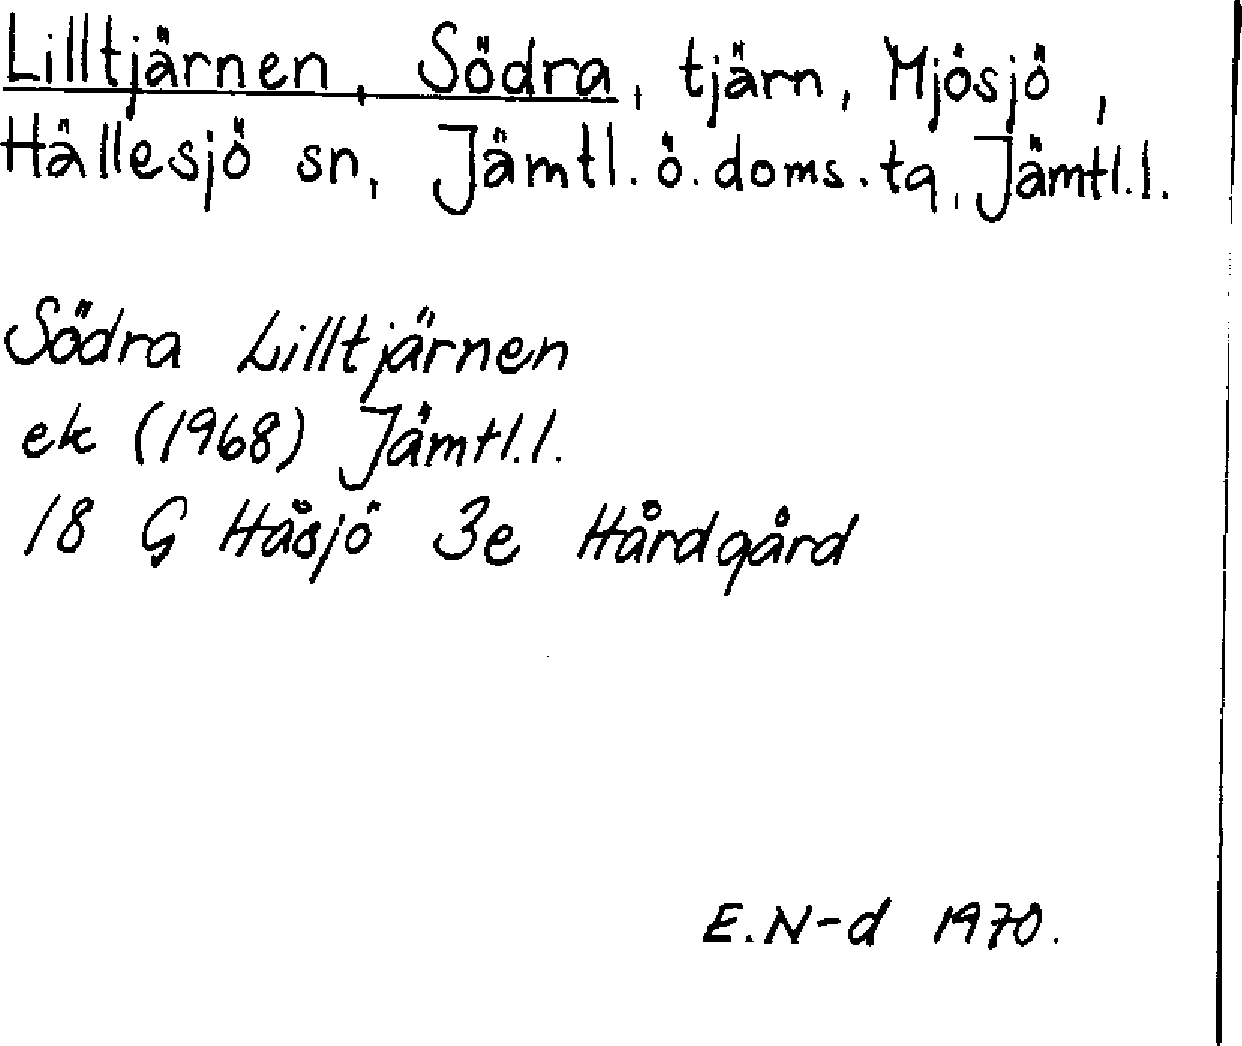 Lilltjärnen, Södra, tjärn, Mjösjö,
Hällesjö sn, Jämtl. ö. doms. tg, Jämtl.l.
Södra Lilltjärnen
ek (1968) Jämtl.l.
18 G Håsjö 3e Hårdgård
E.N-d 1970.